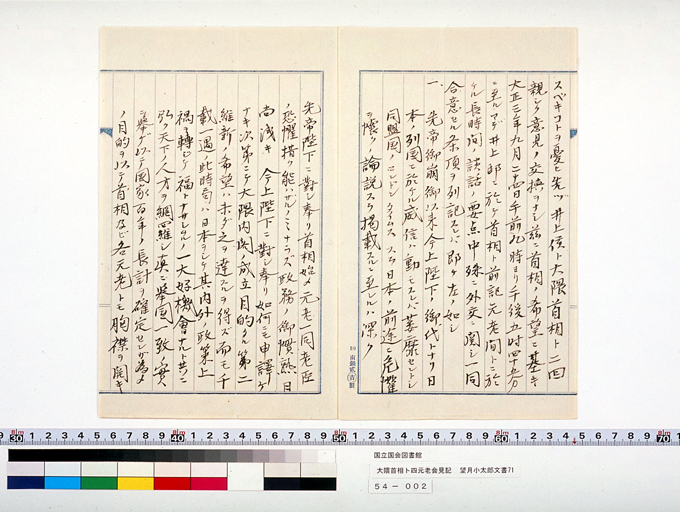 スベキコトヲ憂ヒ先ヅ井上侯ト大隈首相ト二回
親シク意見ノ交換ヲナシ茲ニ首相ノ希望ニ基キ
大正三年九月二十四日午前九時ヨリ午後五時四十五分
ニ至ルマデ井上邸ニ於テ首相ト前記元老間ニ於
ケル長時間ノ談話ノ要点中殊ニ外交ニ関シ一同
合意セル条項ヲ列記スレバ即ケ左ノ如シ
一 先帝御崩御以来今上陛下ノ御代トナリ日
本ノ列国ニ於ケル威信ハ動モスレバ萎靡セントシ
同盟国ノロンドン、タイムス スラ日本ノ前途ニ危惧
ヲ懐ク論説スラ掲載スルニ至レルハ深ク
先帝陛下ニ対シ奉リ首相始メ元老一同老臣
ノ恐懼措ク能ハザルノミナラズ政務ノ御慣熟日
尚浅キ 今上陛下ニ対シ奉リ如何ニモ申訳ケ
ナキ次第ニテ大隈内閣ノ成立目的タル第二
維新ノ希望ハ未ダ之ヲ達スルヲ得ズ而モ千
載一遇ノ此時局ハ日本ヲシテ其内外ノ政策上
禍ヲ転ジテ福トナサシムルノ一大好機会ナルト共ニ
弘ク天下ノ人才ヲ網羅シ真ニ挙国一致ノ実ヲ
挙ゲ以テ国家百年ノ長計ヲ確定センガ為メ
ノ目的ヲ以テ首相及ビ各元老トモ胸襟ヲ開キ
国立国会図書館
大隈首相ト四元老会見記 望月小太郎文書71
54－002